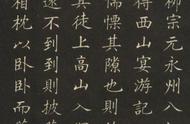 柳宗元永州八
得西山宴游記
惴慄其隙也則
其徒上高山入
遠不到到則披
相枕以卧卧而